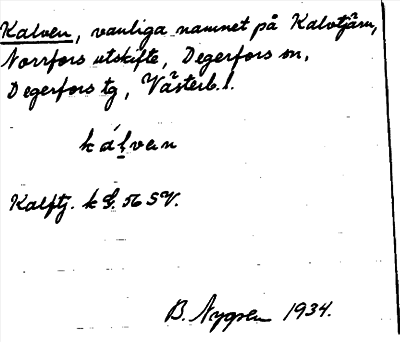 Kalven, vanliga namnet på Kalvtjärn,
Norrfors utskifte, Degerfors sn,
Degerfors tg, Västerb. l.
kálvan
Kalftj. k bl. 56 SV.
B. Nygren 1934.